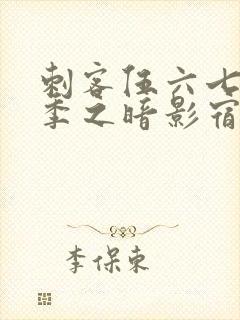 刺客伍六七
季之暗影宿
李保东